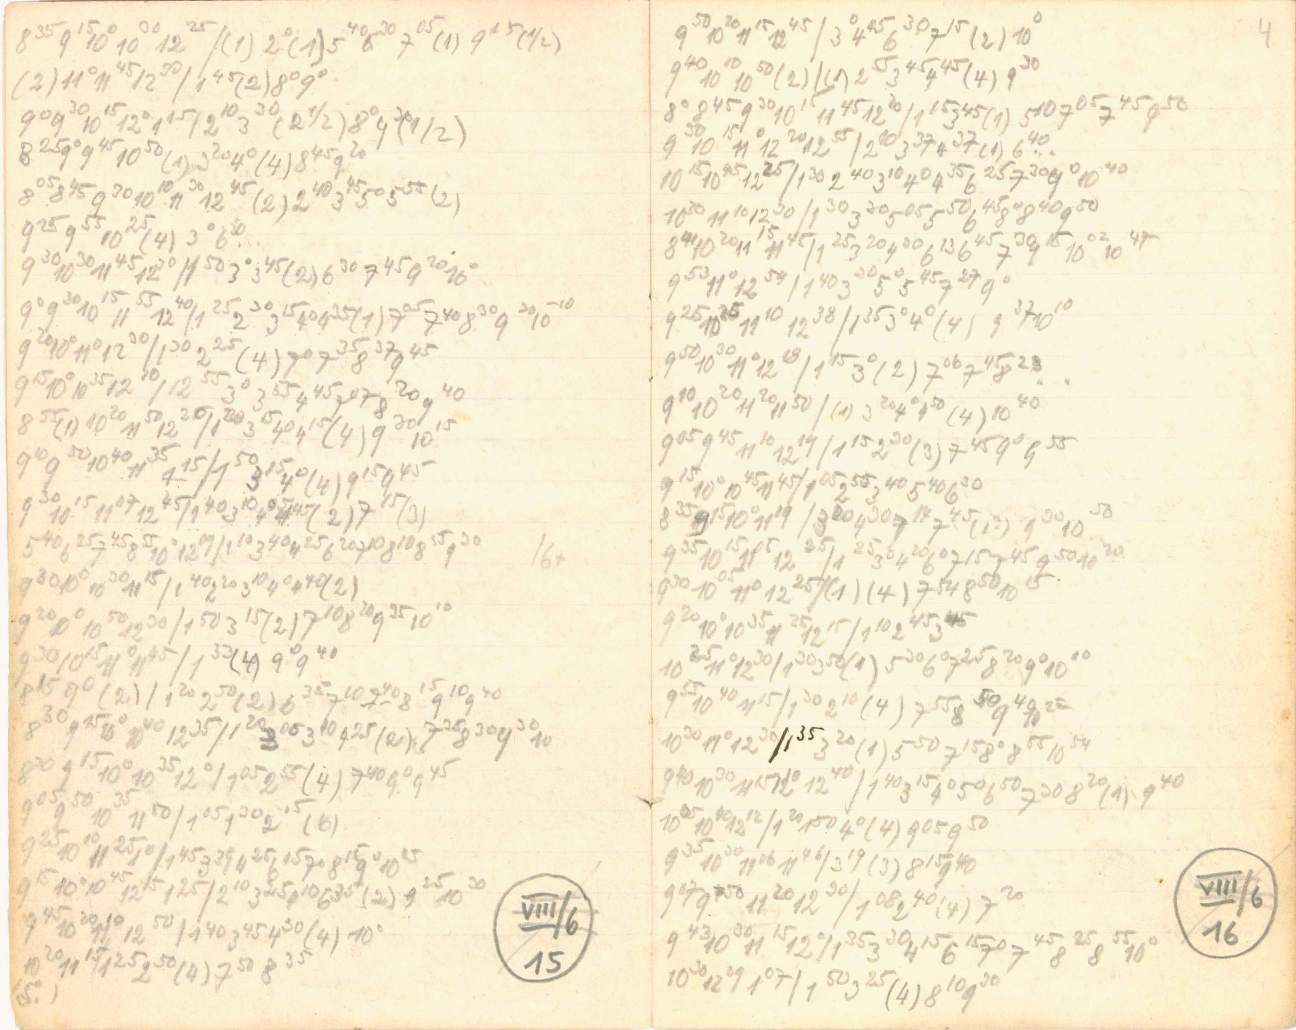 8³⁵ 9¹⁵ 10⁰ 10³⁰ 12²⁵ / (1) 2⁰ (1) 5⁴⁰ 6³⁰ 7⁰⁵ (1) 9¹⁵ (1/2)
(2) 11⁰ 11⁴⁵ 12³⁰ / 1⁴⁵ (2) 8⁰ 9⁰
9⁰ 9³⁰ 10¹⁵ 12⁰ 1¹⁵ / 2¹⁰ 3³⁰ (2 1/2) 8⁰ 9³⁰ (1/2)
8²⁵ 9⁰ 9⁴⁵ 10⁵⁰ (1) 3²⁰ 4⁰ (4) 8⁴⁵ 9²⁰
8⁰⁵ 8⁴⁵ 9³⁰ 10¹⁰ 11³⁰ 12⁴⁵ (2) 2⁴⁰ 3⁴⁵ 5⁰ 5⁵⁵ (2)
9²⁵ 9⁵⁵ 10²⁵ (4) 3⁰ 6³⁰...
9³⁰ 10³⁰ 11⁴⁵ 12³⁰ / 1⁵⁰ 3⁰ 3⁴⁵ (2) 6³⁰ 7⁴⁵ 9²⁰ 10⁰
9⁰ 9³⁰ 10¹⁵ 11⁵⁵ 12⁴⁰ / 1²⁵ 2³⁰ 3¹⁵ 4⁰ 4³⁵ (1) 7⁰⁵ 7⁴⁰ 8³⁰ 9³⁰ 10¹⁰
9²⁰ 10⁰ 11⁰ 12³⁰ / 1³⁰ 2²⁵ (4) 7⁰ 7³⁵ 8³⁷ 9⁴⁵
9¹⁵ 10⁰ 10³⁵ 12²⁰ / 12⁵⁵ 3⁰ 3⁵⁵ 4⁴⁵ 7⁰⁷ 8²⁰ 9⁴⁰
8⁵⁵ (1) 10²⁰ 11⁵⁰ 12²⁰ / 1²⁰ 3¹⁵ 4⁰ 4¹⁵ (4) 9³⁰ 10¹⁵
9⁰ 9⁵⁰ 10⁴⁰ 11³⁵ 1¹⁵ / 1⁵⁰ 3¹⁵ 4⁰ (4) 9¹⁵ 9⁴⁵
9³⁰ 10¹⁵ 11⁰⁷ 12⁴⁵ / 1⁴⁰ 3¹⁰ 4⁴⁵ (2) 7¹⁵ (3)
5⁴⁰ 6²⁵ 7⁴⁵ 8⁵⁵ 10⁰ 12¹⁹ / 1¹⁰ 3⁴⁰ 4²⁵ 6²⁰ 7¹⁰ 8¹⁰ 8⁵⁵ 9³⁰
9³⁰ 10⁰ 10³⁰ 11¹⁵ / 1⁴⁰ 2²⁰ 3¹⁰ 4⁰ 4⁴⁰ (2)
9²⁰ 10⁰ 10⁵⁰ 12³⁰ / 1⁵⁰ 3¹⁵ (2) 7¹⁰ 8²⁰ 9³⁵ 10¹⁰
9³⁰ 10¹⁵ 11⁰ 11⁴⁵ / 1³³ (4) 9⁰ 9⁴⁰
8¹⁵ 9⁰ (2) / 1²⁰ 2⁵⁰ (2) 6³⁵ 7¹⁰ 7⁴⁰ 8¹⁵ 9¹⁰ 9⁴⁰
8³⁰ 9¹⁵ 10⁰ 10⁴⁰ 12³⁵ / 1²⁰ 3⁰⁵ 3⁴⁰ 4²⁵ (2) 7²⁵ 8³⁰ 9³⁰ 10
8³⁰ 9¹⁵ 10⁰ 10³⁵ 12⁰ / 1⁰⁵ 2⁵⁵ (4) 7⁴⁰ 9⁰ 9⁴⁵
9⁰⁵ 9⁵⁰ 10³⁵ 11⁵⁰ / 1⁰⁵ 1³⁰ 2¹⁵ (6)
9²⁵ 10¹⁰ 11²⁵ 1⁰ / 1⁴⁵ 3³⁹ 4²⁵ 6¹⁵ 7⁰ 8¹⁵ 9⁰ 10¹⁵
9¹⁵ 10⁰ 10⁴⁵ 12¹⁵ 1²⁵ / 2¹⁰ 3²⁵ 6³⁵ (2) 9²⁵ 10³⁰
9⁴⁵ 10²⁰ 11¹⁰ 12⁵⁰ / 1⁴⁰ 3⁴⁵ 4³⁰ (4) 10⁰
10²⁰ 11¹⁵ / 1²⁵ 2⁵⁰ (4) 7⁵⁰ 8³⁵
VIII/6
15
4
9⁵⁰ 10²⁰ 11¹⁵ 12⁴⁵ / 3⁰ 4⁴⁵ 6³⁰ 7¹⁵ (2) 10⁰
9⁴⁰ 10¹⁰ 10⁵⁰ (2) / (1) 2⁵⁵ 3⁴⁵ 4⁴⁵ (4) 9³⁰
8⁰ 8⁴⁵ 9³⁰ 10¹⁵ 11⁴⁵ 12²⁰ / 1¹⁵ 3⁴⁵ (1) 5¹⁰ 7⁰⁵ 7⁴⁵ 9⁵⁰
9³⁰ 10¹⁵ 11⁰ 12²⁰ 12⁵⁵ / 2⁰⁰ 3³⁷ 4³⁷ (1) 6⁴⁰...
10¹⁵ 10⁴⁵ 12²⁵ / 1³⁰ 2⁴⁰ 3¹⁰ 4⁰ 4³⁵ 6²⁵ 7³⁰ 9⁰ 10⁴⁰
10³⁰ 11¹⁰ 12³⁰ / 1³⁰ 3³⁰ 5⁰⁵ 5⁵⁰ 6⁴⁵ 8⁰ 8⁴⁰ 9⁵⁰
8⁴⁴ 10²⁰ 11¹⁵ 11⁴⁵ / 1²⁵ 3²⁰ 4⁰⁰ 6¹³ 6⁴⁵ 7³⁰ 9¹⁵ 10⁰² 10⁴⁷
9⁵³ 11⁰ 12⁵⁴ / 1⁴⁰ 3³⁰ 5⁰ 5⁴⁵ 7²⁷ 9⁰
9²⁵ 10²⁵ 11¹⁰ 12³⁸ / 1³⁵ 3⁰ 4⁰ (4) 9³⁷ 10¹⁰
9⁵⁰ 10³⁰ 11⁰ 12¹⁸ / 1¹⁵ 3⁰ (2) 7⁰⁶ 7⁴⁵ 8²³
9¹⁰ 10²⁰ 11²⁰ 11⁵⁰ / (1) 3²⁰ 4⁰ 4⁵⁰ (4) 10⁴⁰
9⁰⁵ 9⁴⁵ 11¹⁰ 12¹⁹ / 1¹⁵ 2³⁰ (3) 7⁴⁵ 9⁰ 9⁵⁵
9¹⁵ 10⁰ 10⁴⁵ 11⁴⁵ / 1⁰⁵ 2⁵⁵ 3⁴⁰ 5⁴⁰ 6³⁰
8³⁵ 9¹⁵ 10⁰ 11¹⁹ / 3²⁰ 4³⁰ 7¹⁴ 7⁴⁵ 9³⁰ 10⁵⁰
9³⁵ 10¹⁵ 11¹⁵ 12²⁵ / 1²⁵ 3⁰ 4²⁰ 6⁰ 7¹⁵ 7⁴⁵ 9⁵⁰ 10²⁰
9³⁰ 10⁰⁵ 11⁰ 12²⁵ / (1) (4) 7⁵⁴ 8⁵⁰ 10¹⁵
9²⁰ 10⁰ 10³⁵ 11²⁵ 12¹⁵ / 1¹⁰ 2⁴⁵ 3⁴⁵
10²⁵ 11⁰ 12³⁰ / 1³⁰ 3⁵⁰ (1) 5³⁰ 6⁰ 7²⁵ 8²⁰ 9⁰ 10¹⁰
9⁵⁵ 10⁴⁰ 11¹⁵ / 1³⁰ 2¹⁰ (4) 7⁵⁵ 8⁵⁰ 9⁴⁹
10³⁰ 11⁰ 12³⁰ / 1³⁵ 3²⁰ (1) 5⁵⁰ 7¹⁵ 8⁰ 8⁵⁵ 10⁵⁴
9⁴⁰ 10³⁰ 11¹⁵ 12¹⁰ 12⁴⁰ / 1⁴⁰ 3¹⁵ 4⁰ 5⁰ 6⁵⁰ 7³⁰ 8²⁰ (1) 9⁴⁰
10⁰⁵ 10⁴⁰ 12¹² / 1²⁰ 1⁵⁰ 4⁰ (4) 9⁰⁵ 9⁵⁰
9³⁵ 10³⁰ 11⁰⁶ 11⁴⁶ / 3¹⁹ (3) 8¹⁵ 9⁴⁰
9⁰⁷ 9⁵⁰ 11²⁰ 12³⁰ / 1⁰⁸ 2⁴⁰ (4) 7²⁰
9⁴³ 10³⁰ 11¹⁵ 12⁰ / 1³⁵ 3³⁰ 4¹⁵ 6¹⁵ 7⁰ 7⁴⁵ 8²⁵ 8⁵⁵ 10⁰
10³⁰ 12⁰⁹ 1⁰⁷ / 1⁵⁰ 3²⁵ (4) 8¹⁰ 9³⁰
VIII/6
16